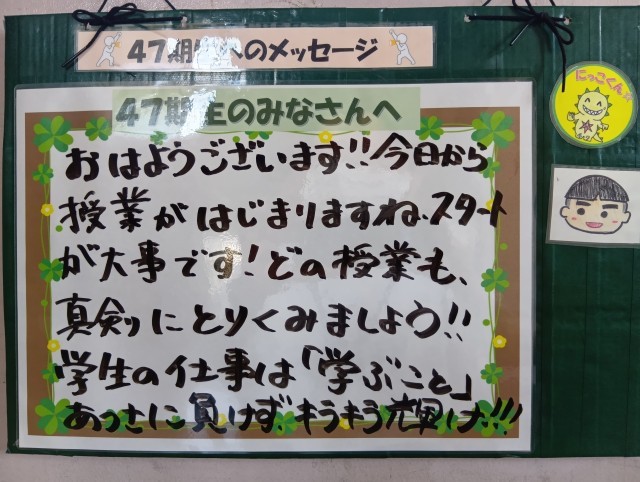 47期生へのメッセージ
47期生のみなさんへ
にっこくん
おはようございます!!今日から
授業がはじまりますね、スタート
が大事です!どの授業も、
真剣にとりくみましょう!!
学生の仕事は「学ぶこと」
あつさに負けず、キラキラ輝け!!!